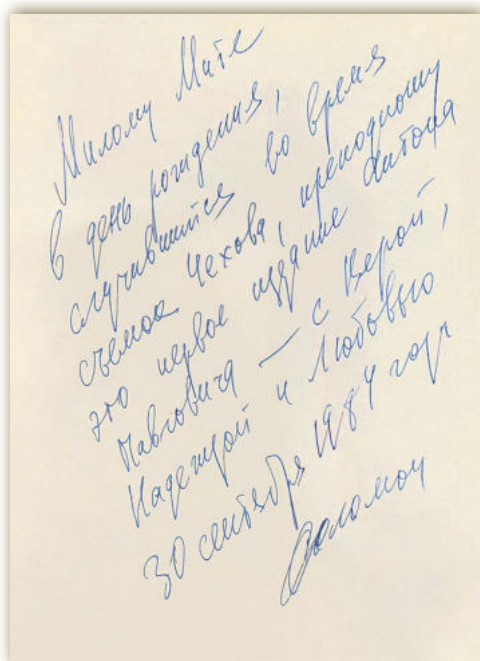 Милому Мите
в день рождения,
случившийся во время
съемок Чехова, преподношу
это первое издание Антона
Павловича — с Верой,
Надеждой и Любовью
30 сентября 1984 года
Соломон